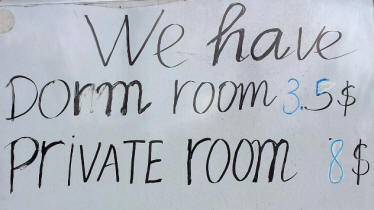 We have
Dorm room 3.5$
PriVATE room 8$